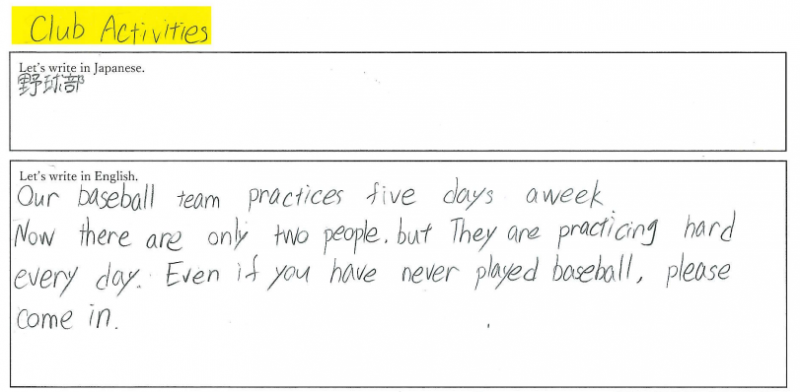 Club Activities
Let's write in Japanese.
野球部
Let's write in English.
Our baseball team practices five days aweek
Now there are only two people. but They are practicing hard
every day. Even if you have never played baseball, please
come in.